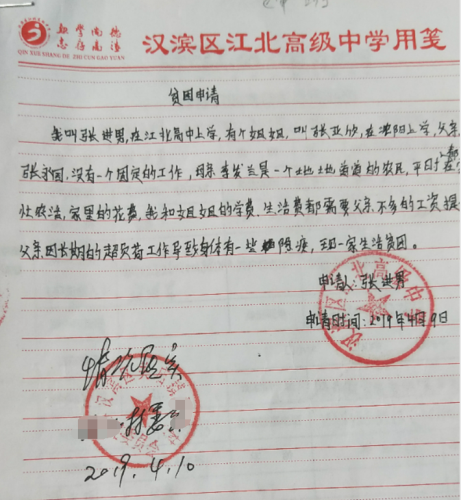 勤学尚德
志存高远
QIN XUE SHANG DE ZHI CUN GAO YUAN
汉滨区江北高级中学用笺
贫困申请
我叫张世男,在江北高中上学,有个姐姐,叫张亚欣,在沈阳上学,父亲
张,没有一个固定的工作,母亲是一个土地土地道道的农民,平日
农活,家里的花费,我和姐姐的学费、生活费都需要父亲不多的工资
父亲因长期的超负荷工作导致身体有一些隐疾,一家生活贫困。
申请人:张世男
申请时间:2019年4月9日
汉滨区江北高级中学
情况属实
汉滨区
2019.4.10